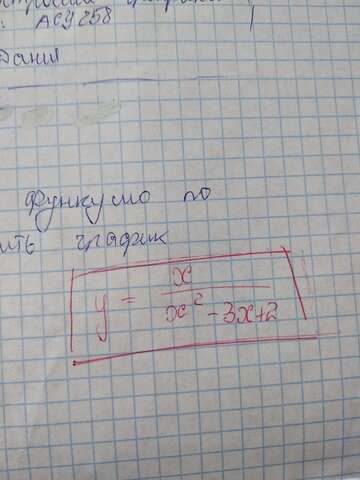 : АСУ 258
Дания
функцию по
ить график
y = x / x² - 3x + 2